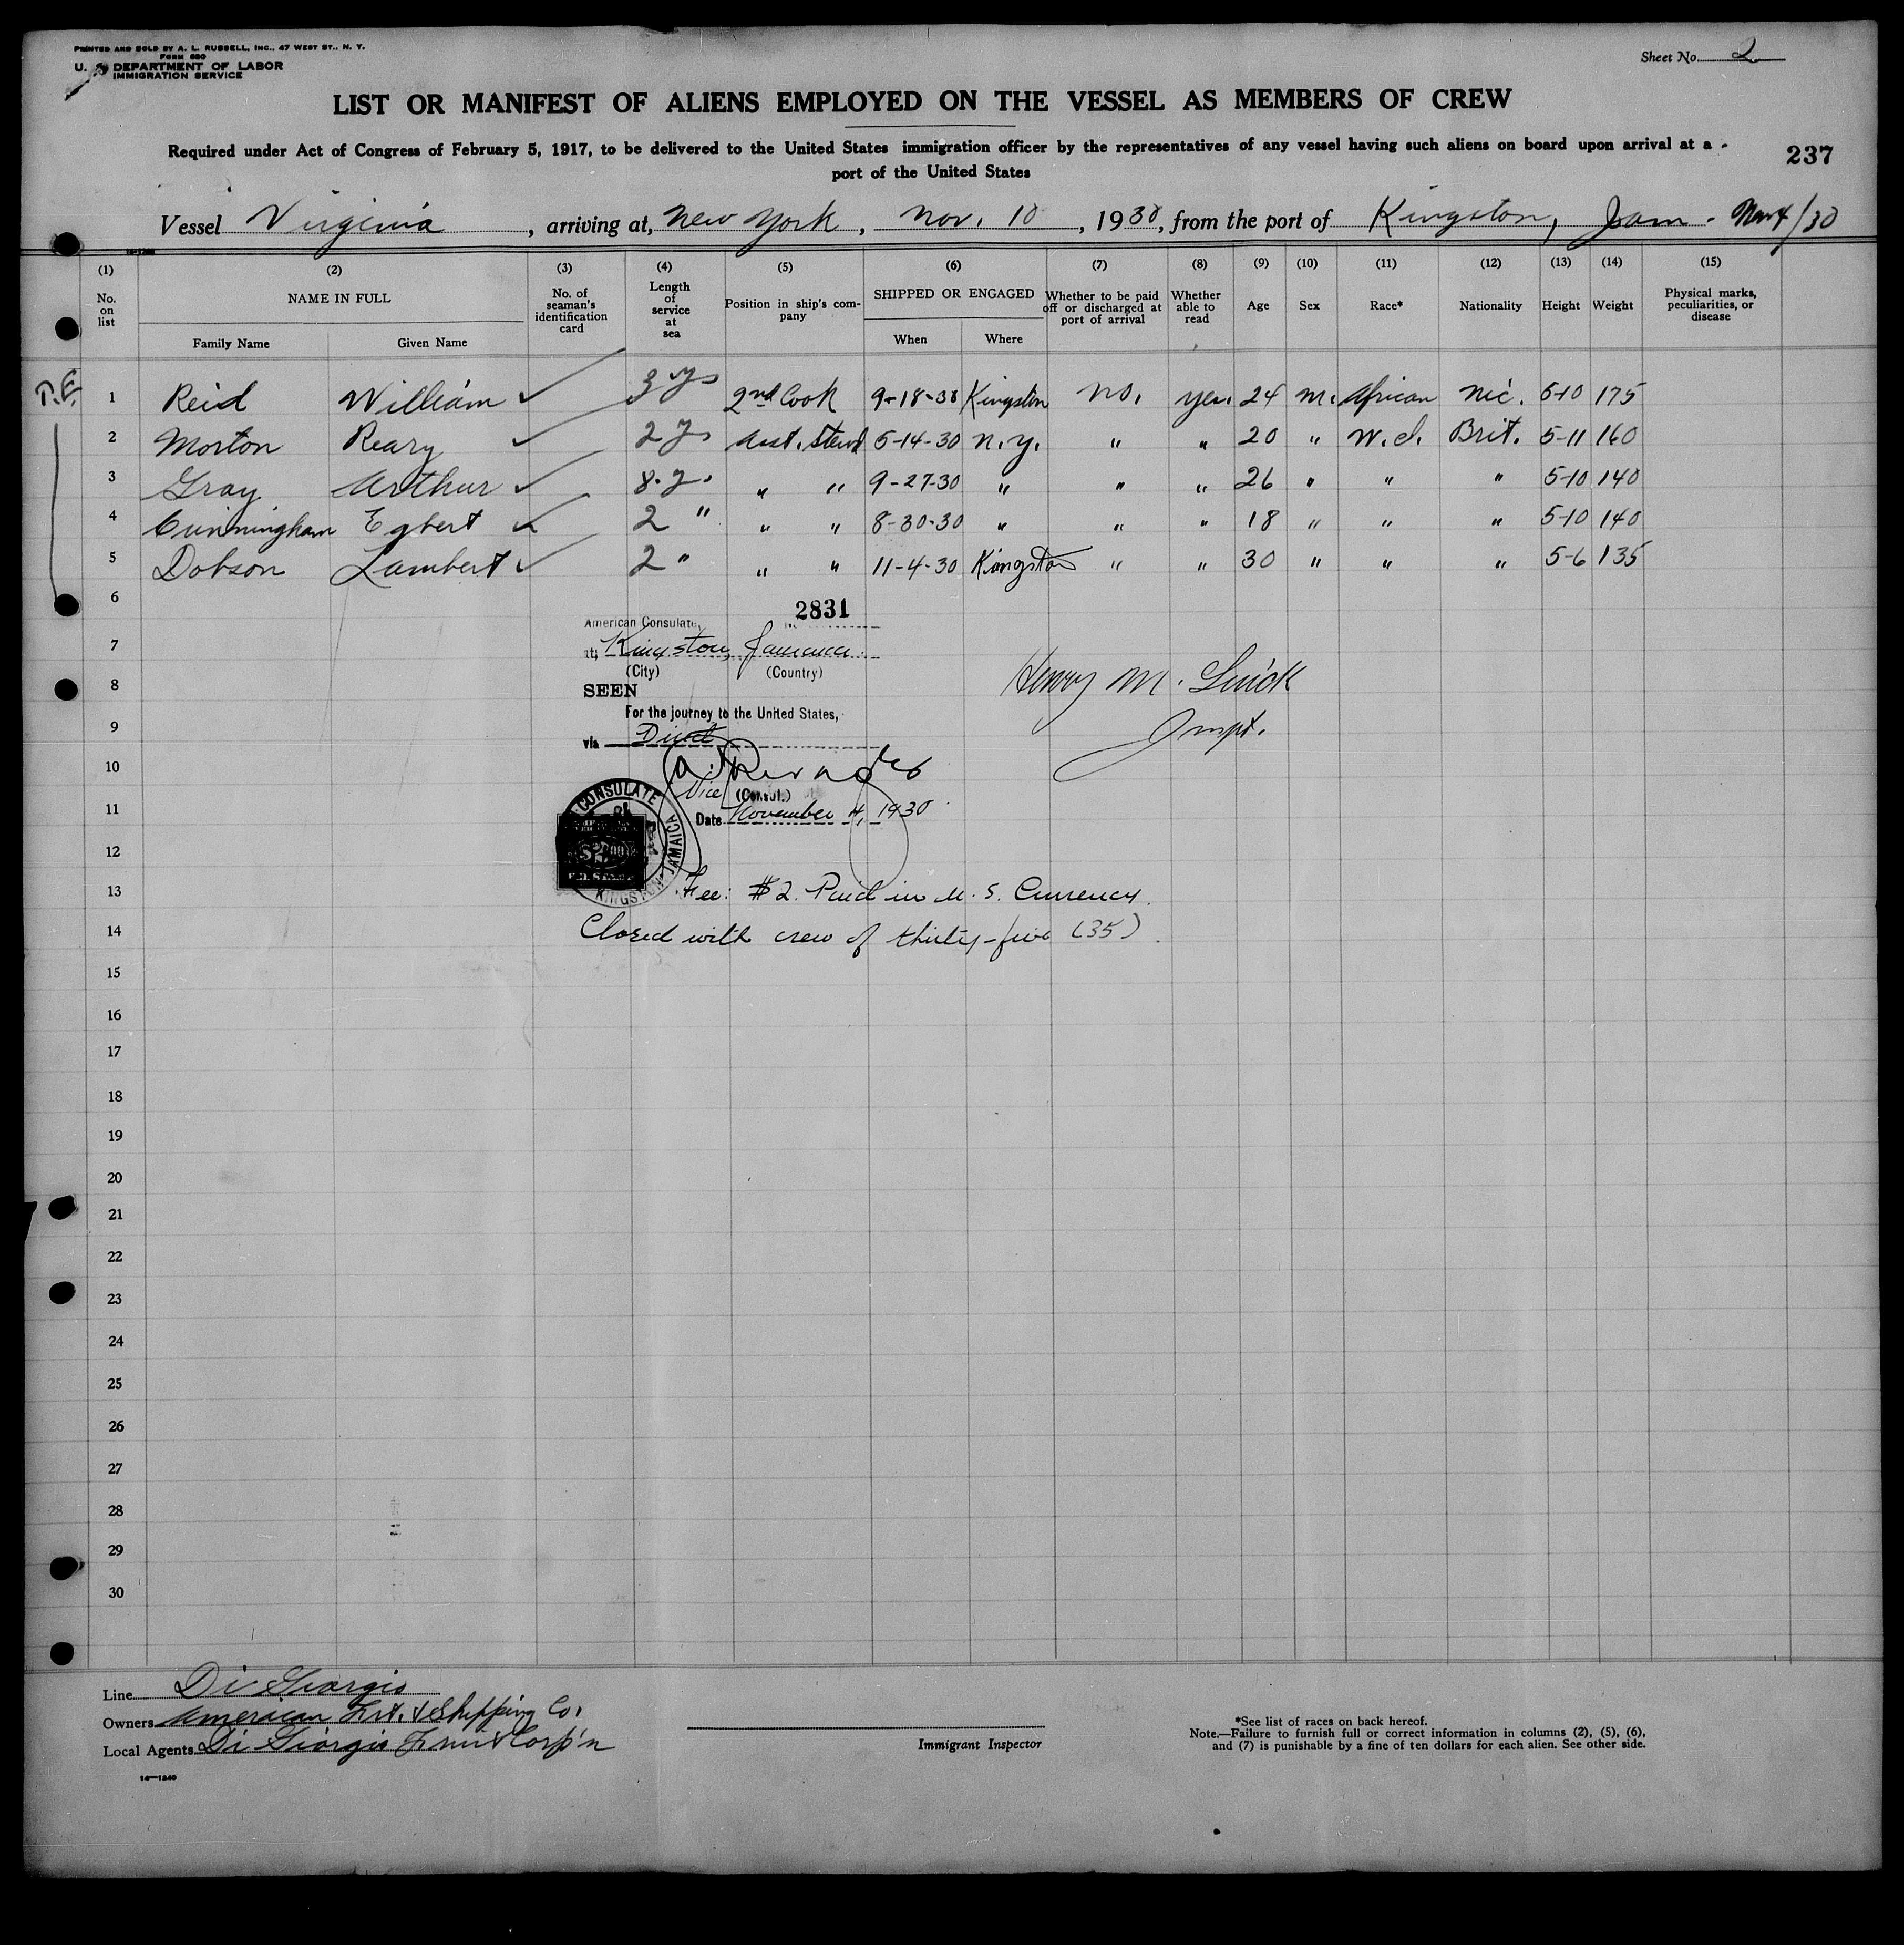 PRINTED AND SOLD BY A. L. RUSSELL, INC., 47 WEST ST., N. Y.
FORM 680
U. S. DEPARTMENT OF LABOR
IMMIGRATION SERVICE
Sheet No. 2
LIST OR MANIFEST OF ALIENS EMPLOYED ON THE VESSEL AS MEMBERS OF CREW
Required under Act of Congress of February 5, 1917, to be delivered to the United States immigration officer by the representatives of any vessel having such aliens on board upon arrival at a
port of the United States
237
Vessel Virginia, arriving at, New York, Nov. 10, 1930, from the port of Kingston, Jam. Nov 4/30
(1) (2) (3) (4) (5) (6) (7) (8) (9) (10) (11) (12) (13) (14) (15)
No. on list NAME IN FULL No. of seaman's identification card Length of service at sea Position in ship's company SHIPPED OR ENGAGED Whether to be paid off or discharged at port of arrival Whether able to read Age Sex Race* Nationality Height Weight Physical marks, peculiarities, or disease
Family Name Given Name When Where
1 Reid William ✓ 3 ys 2nd Cook 9-18-30 Kingston no. yes. 24 m. African Nic. 5-10 175
2 Morton Reary ✓ 2 ys Asst. Stewd 5-14-30 N.Y. " " 20 " W.I. Brit. 5-11 160
3 Gray Arthur ✓ 8 y. " " 9-27-30 " " " 26 " " " 5-10 140
4 Cunningham Egbert ✓ 2 " " " 8-30-30 " " " 18 " " " 5-10 140
5 Dobson Lambert ✓ 2 " " " 11-4-30 Kingston " " 30 " " " 5-6 135
6
2831
American Consulate,
7
at, Kingston, Jamaica
(City) (Country)
8
SEEN
Henry M.
For the journey to the United States,
9
via Direct
10
Vice (Consul.)
11
Date November 4, 1930
CONSULATE
KINGSTON JAMAICA
12
13
Fee: $2. Paid in U. S. Currency.
14
Closed with crew of thirty-five (35)
15
16
17
18
19
20
21
22
23
24
25
26
27
28
29
30
Line Di Giorgio
Owners American Frt. & Shipping Co.
Local Agents Di Giorgio Fruit Corp'n
Immigrant Inspector
*See list of races on back hereof.
Note.—Failure to furnish full or correct information in columns (2), (5), (6),
and (7) is punishable by a fine of ten dollars for each alien. See other side.
14—1240